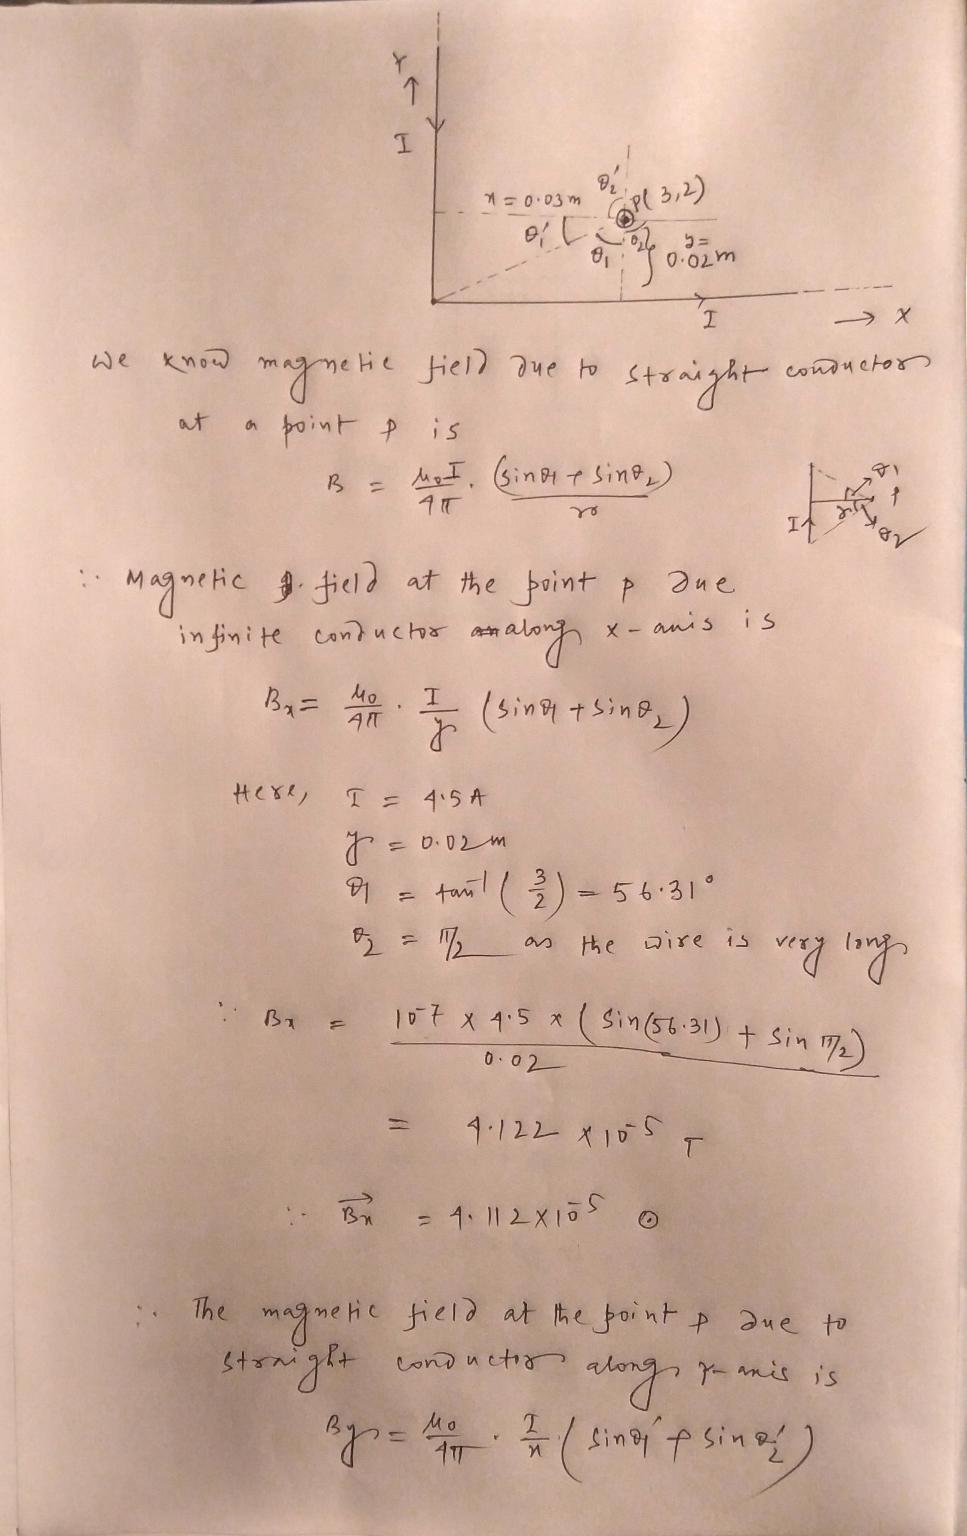 Y
↑
I
x = 0.03m
θ₂′
P(3,2)
θ₁′
θ₁
θ₂
y =
0.02m
I
→ X
We know magnetic field due to straight conductor
at a point p is
B = μ₀I/4π . (sinθ₁ + sinθ₂)/r
θ₁
p
r
I
θ₂
∴ Magnetic field at the point p due
infinite conductor along x-axis is
Bx = μ₀/4π . I/y (sinθ₁ + sinθ₂)
Here, I = 4.5A
y = 0.02m
θ₁ = tan⁻¹(3/2) = 56.31°
θ₂ = π/2 as the wire is very long
∴ Bx = 10⁻⁷ × 4.5 × (sin(56.31) + sin π/2)/0.02
= 4.122 × 10⁻⁵ T
∴ B⃗x = 4.112×10⁻⁵ ⊙
∴ The magnetic field at the point p due to
straight conductor along y-axis is
By = μ₀/4π . I/x (sinθ₁′ + sinθ₂′)